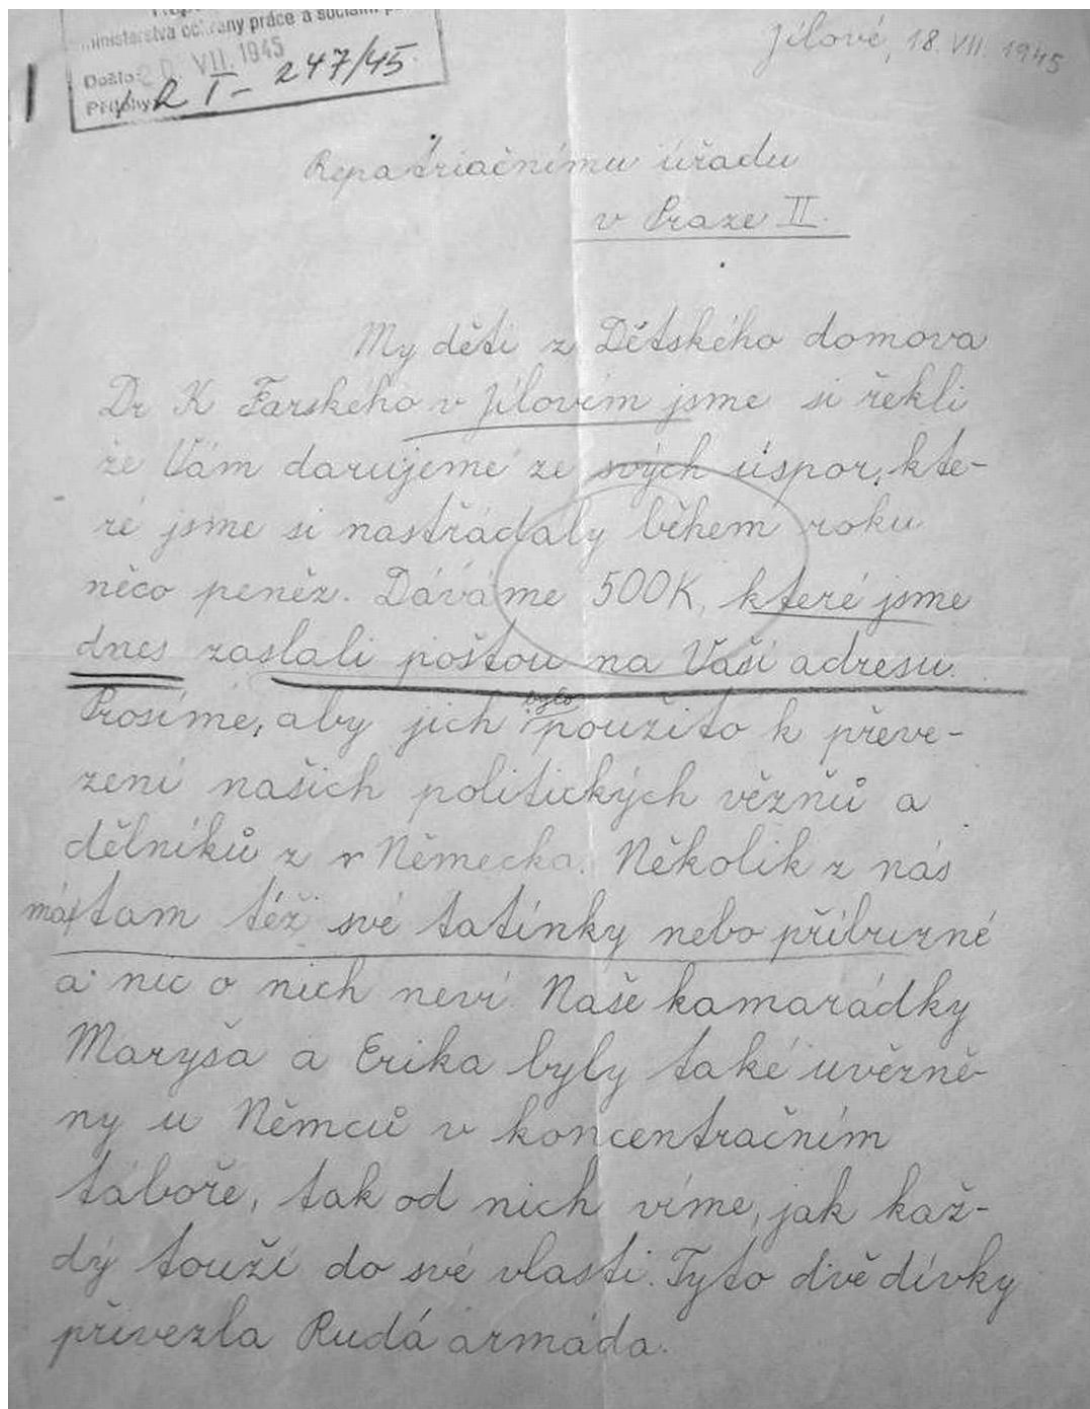 ministerstva ochrany práce a sociální
Došlo: 20. VII. 1945
Přílohy R I - 247/45
Jílové, 18. VII. 1945
Repatriačnímu úřadu
v Praze II.
My děti z Dětského domova
Dr K Farského v Jílovém jsme si řekli
že Vám darujeme ze svých úspor, kte-
ré jsme si nastřádaly během roku
něco peněz. Dáváme 500K, které jsme
dnes zaslali poštou na Vaši adresu.
Prosíme, aby jich bylo použito k převe-
zení našich politických vězňů a
dělníků z Německa. Několik z nás
má tam též své tatínky nebo příbuzné
a nic o nich neví. Naše kamarádky
Maryša a Erika byly také uvězně-
ny u Němců v koncentračním
táboře, tak od nich víme, jak kaž-
dý touží do své vlasti. Tyto dvě dívky
přivezla Rudá armáda.